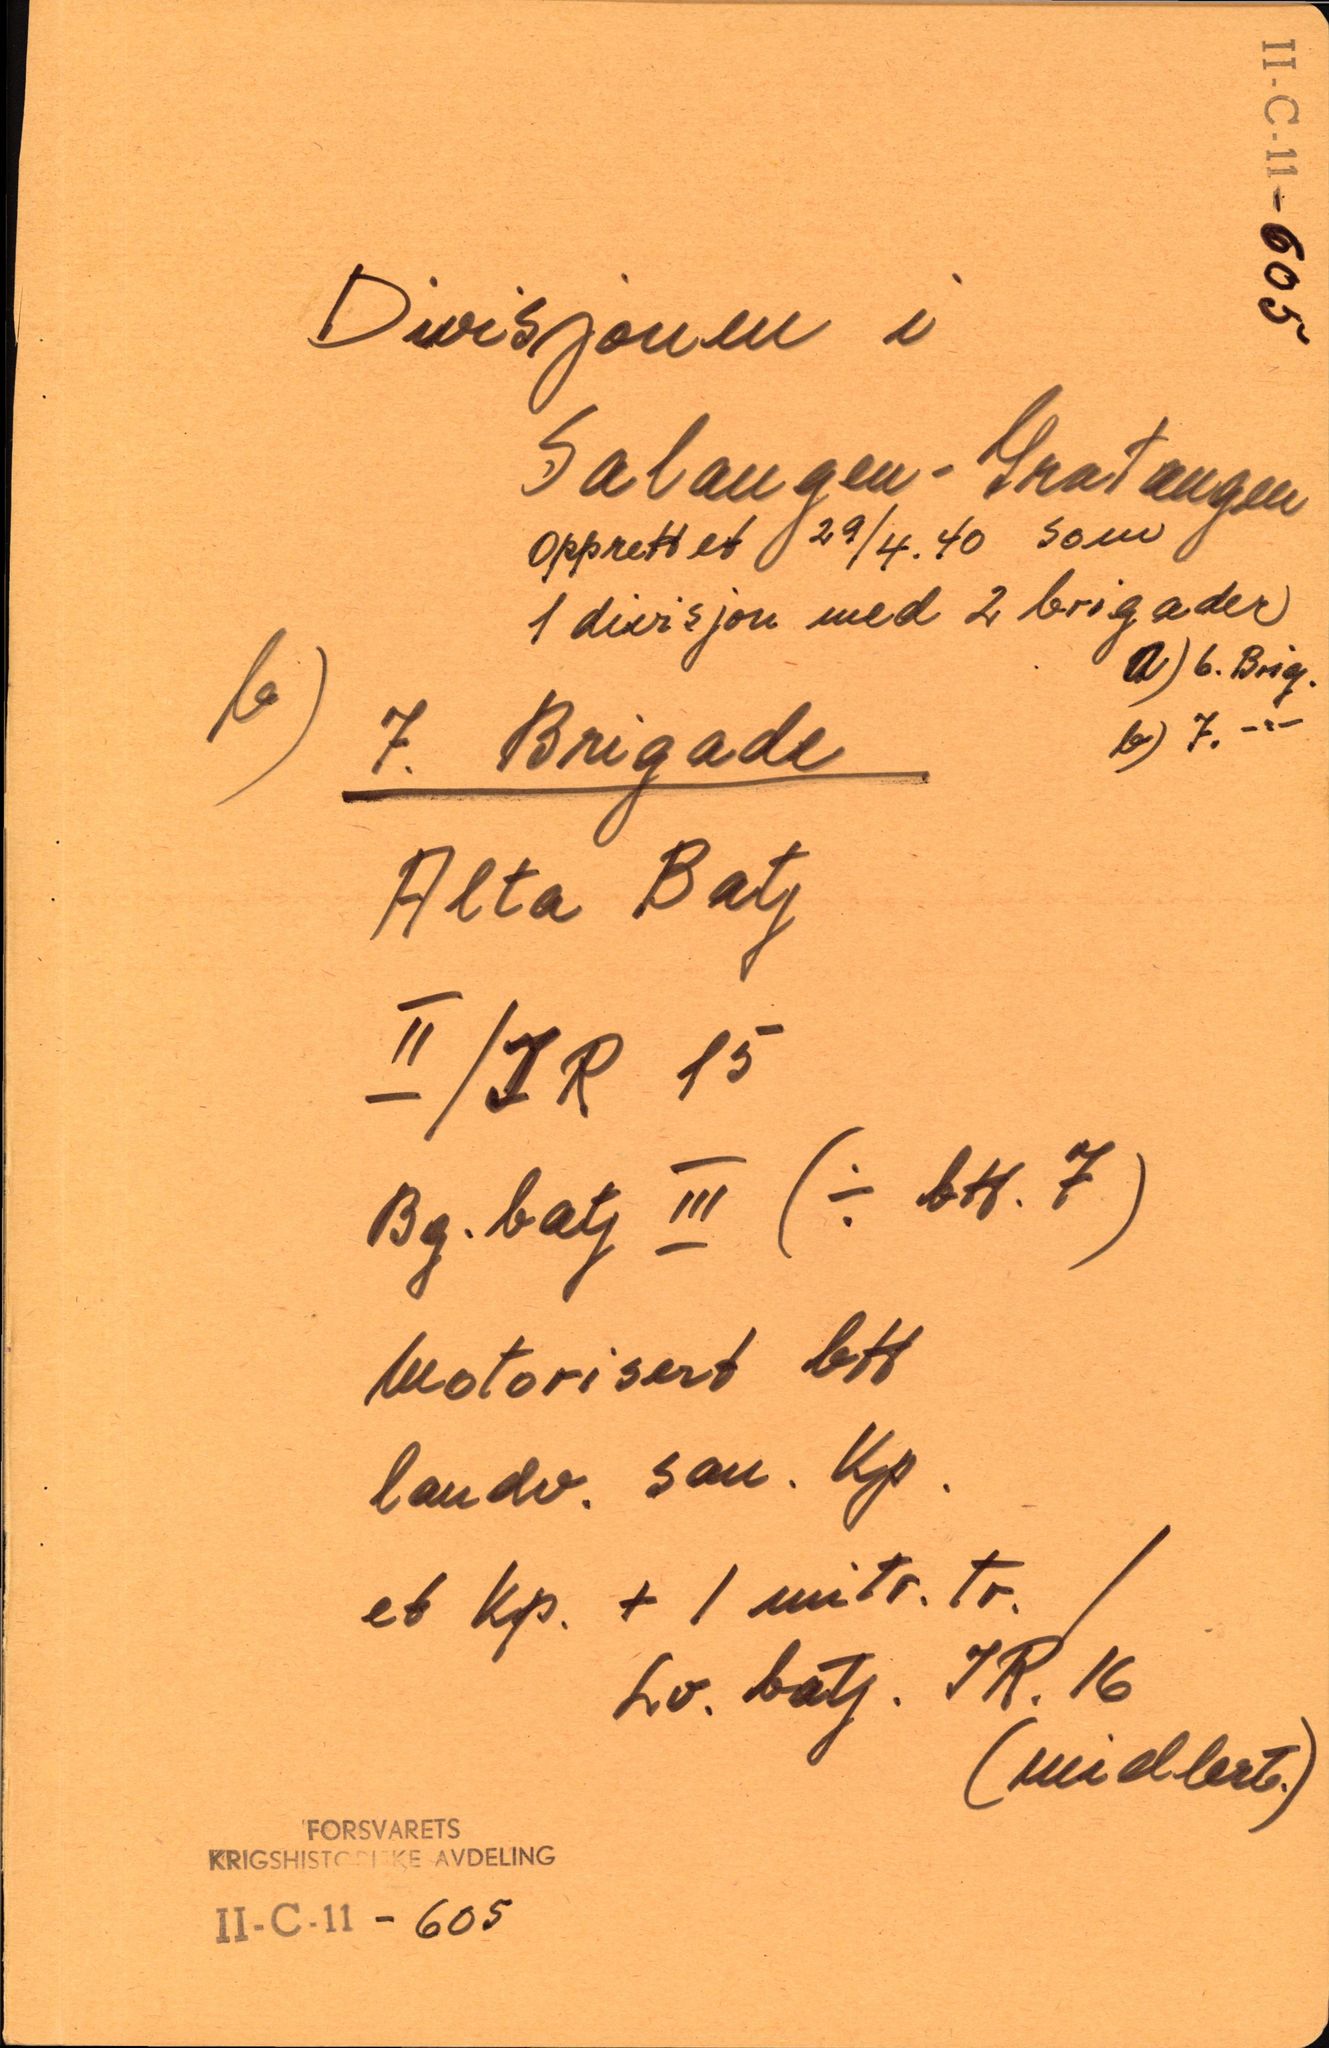 II-C-11-605
Divisjonen i
Salangen-Gratangen
opprettet 29/4.40 som
1 divisjon med 2 brigader
a) 6. Brig.
b) 7. -"-
b) 7. Brigade
Alta Batj
II/IR 15
Bg. batj III (÷ btt. 7)
Motorisert btt
landv. san. Kp.
et Kp. + 1 mitr. tr. /
Lv. batj. IR. 16
(midlert.)
FORSVARETS
KRIGSHISTORISKE AVDELING
II-C-11 - 605